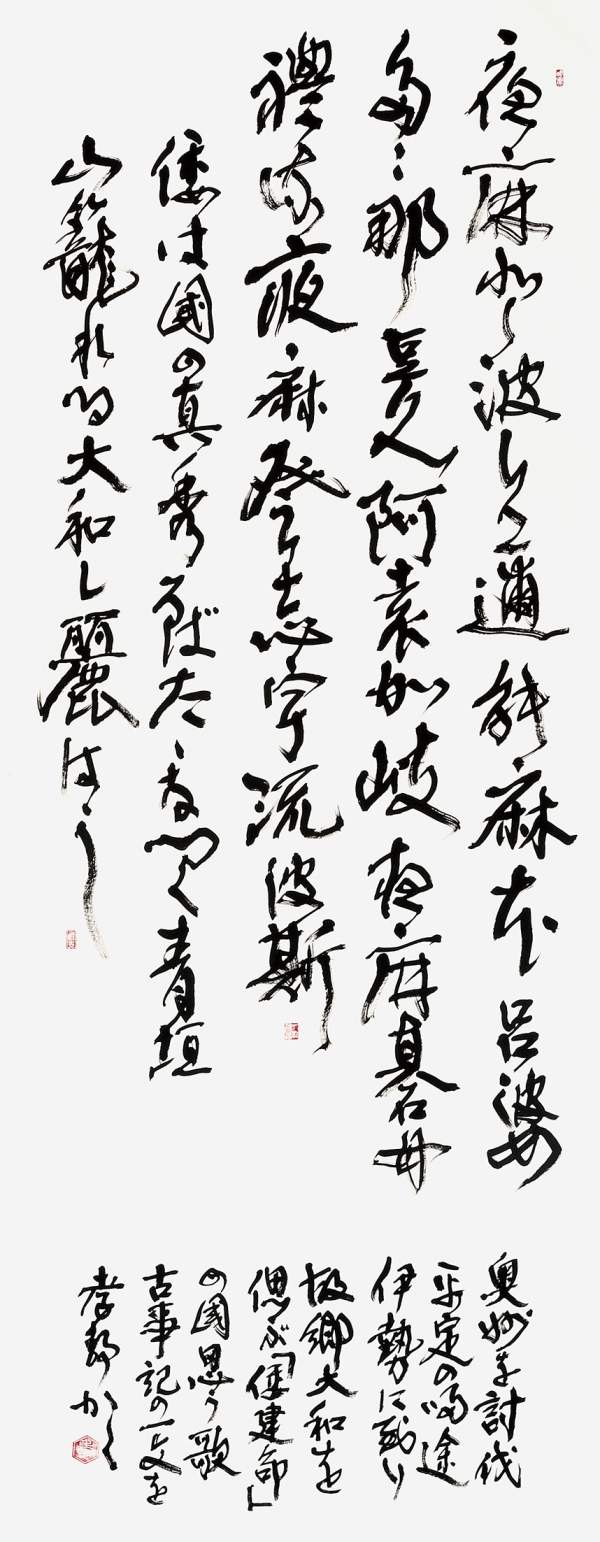 夜麻登波久邇能麻本呂婆
多々那豆久阿袁加岐夜麻碁母
禮流夜麻登志宇流波斯
倭は國の真秀ろばたゝなづく青垣
山籠れる大和し麗はし
奥州を討伐
平定の帰途
伊勢に到り
故郷大和を
偲ぶ「倭建命」
の國思う歌
古事記の一文を
かく